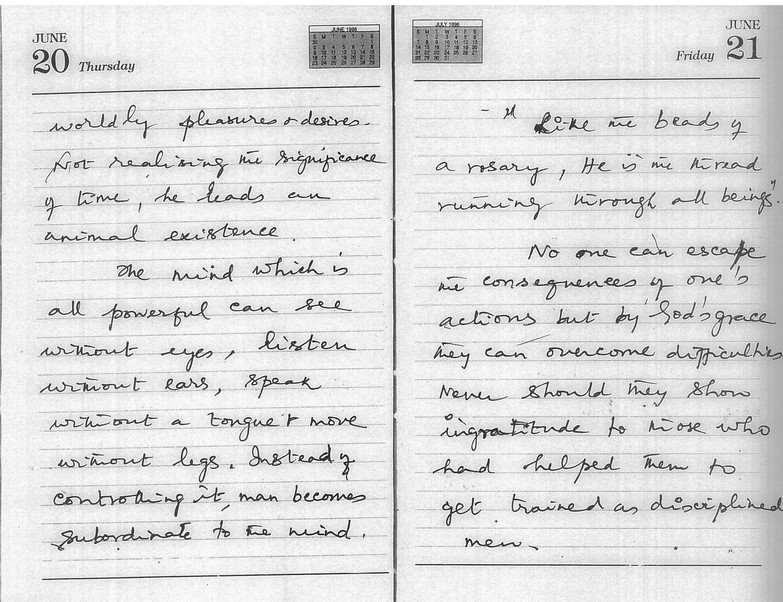 JUNE
20 Thursday
JUNE 1996
worldly pleasures & desires.
Not realising the significance
of time, he leads an
animal existence.
The mind which is
all powerful can see
without eyes, listen
without ears, speak
without a tongue & move
without legs. Instead of
controlling it, man becomes
subordinate to the mind.
JULY 1996
JUNE
Friday 21
Like the beads of
a rosary, He is the thread
running through all beings".
No one can escape
the consequences of one's
actions but by God's grace
they can overcome difficulties
Never should they show
ingratitude to those who
had helped them to
get trained as disciplined
men.